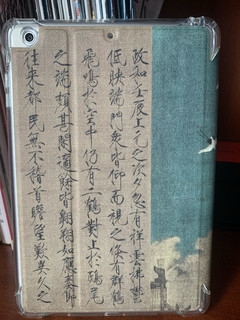 政和壬辰上元之次夕忽有祥雲拂鬱
低映端門衆皆仰而視之倏有群鶴
飛鳴於空中仍有二鶴對止於鴟尾
之端頗甚閑適餘皆翱翔如應奏節
往來都民無不稽首瞻望歎異久之